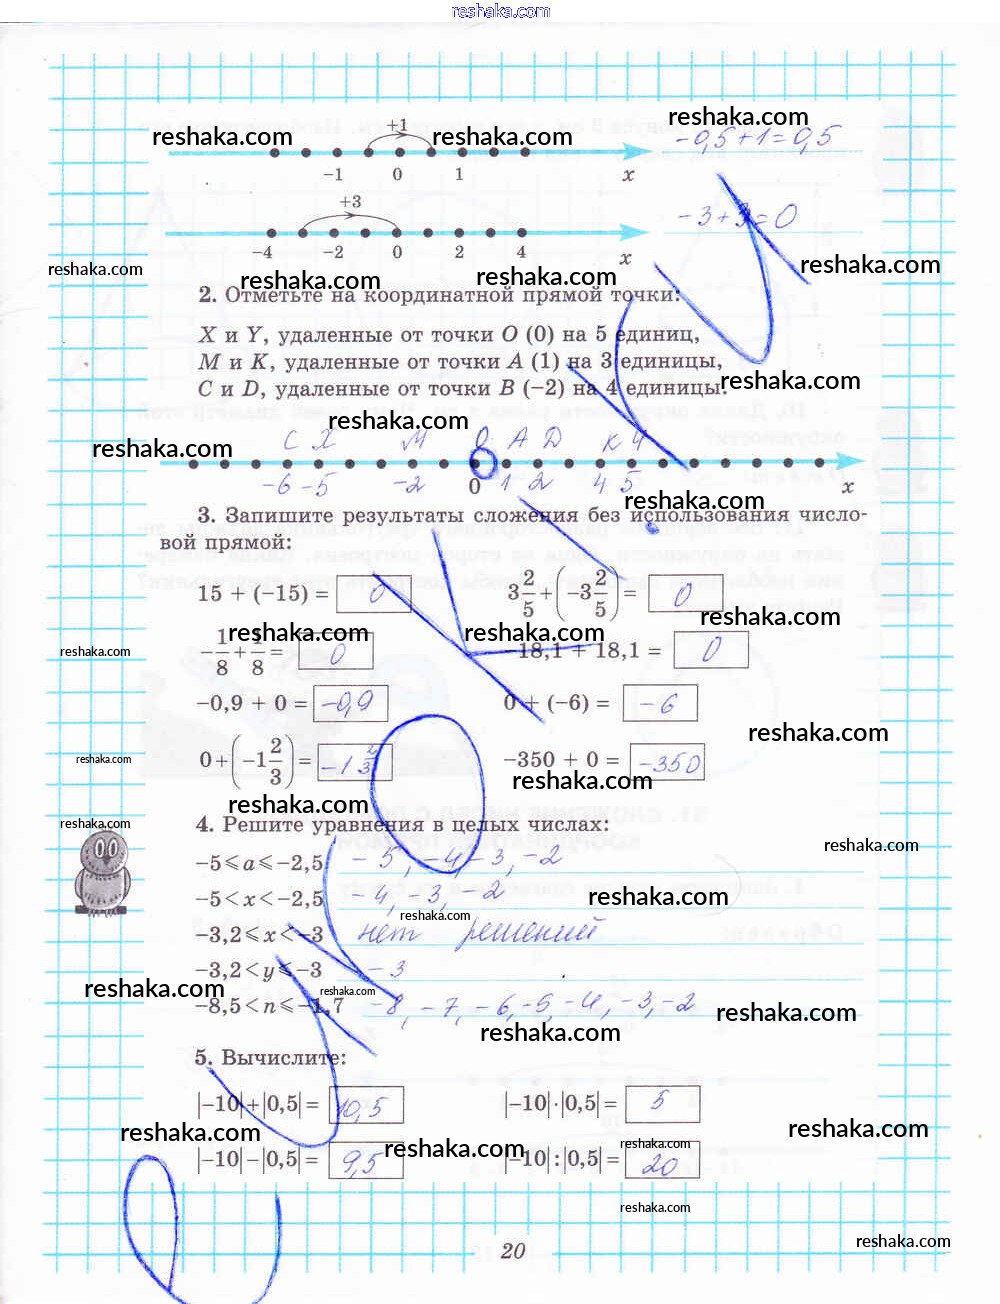 reshaka.com
+1
reshaka.com reshaka.com reshaka.com
-0,5+1=0,5
−1 0 1 x
+3
-3+3=0
−4 −2 0 2 4 x
reshaka.com reshaka.com reshaka.com reshaka.com
2. Отметьте на координатной прямой точки:
X и Y, удаленные от точки O (0) на 5 единиц,
M и K, удаленные от точки A (1) на 3 единицы,
C и D, удаленные от точки B (−2) на 4 единицы.
reshaka.com
reshaka.com reshaka.com
C X M O A D K Y
-6 -5 -2 0 1 2 4 5 x
reshaka.com
3. Запишите результаты сложения без использования числовой прямой:
15 + (−15) = 0
3 2/5 + (−3 2/5) = 0
reshaka.com
reshaka.com reshaka.com reshaka.com
−1/8 + 1/8 = 0
−18,1 + 18,1 = 0
−0,9 + 0 = -0,9
0 + (−6) = -6
reshaka.com
0 + (−1 2/3) = -1 2/3
−350 + 0 = -350
reshaka.com reshaka.com
reshaka.com
reshaka.com
4. Решите уравнения в целых числах:
reshaka.com
−5 ⩽ a ⩽ −2,5 -5, -4, -3, -2
−5 < x < −2,5 -4, -3, -2
reshaka.com
reshaka.com
−3,2 ⩽ x < −3 нет решений
−3,2 < y ⩽ −3 -3
reshaka.com reshaka.com
−8,5 < n ⩽ −1,7 -8, -7, -6, -5, -4, -3, -2
reshaka.com reshaka.com
5. Вычислите:
|−10| + |0,5| = 10,5
|−10| · |0,5| = 5
reshaka.com reshaka.com reshaka.com reshaka.com
|−10| − |0,5| = 9,5
|−10| : |0,5| = 20
reshaka.com
20
reshaka.com